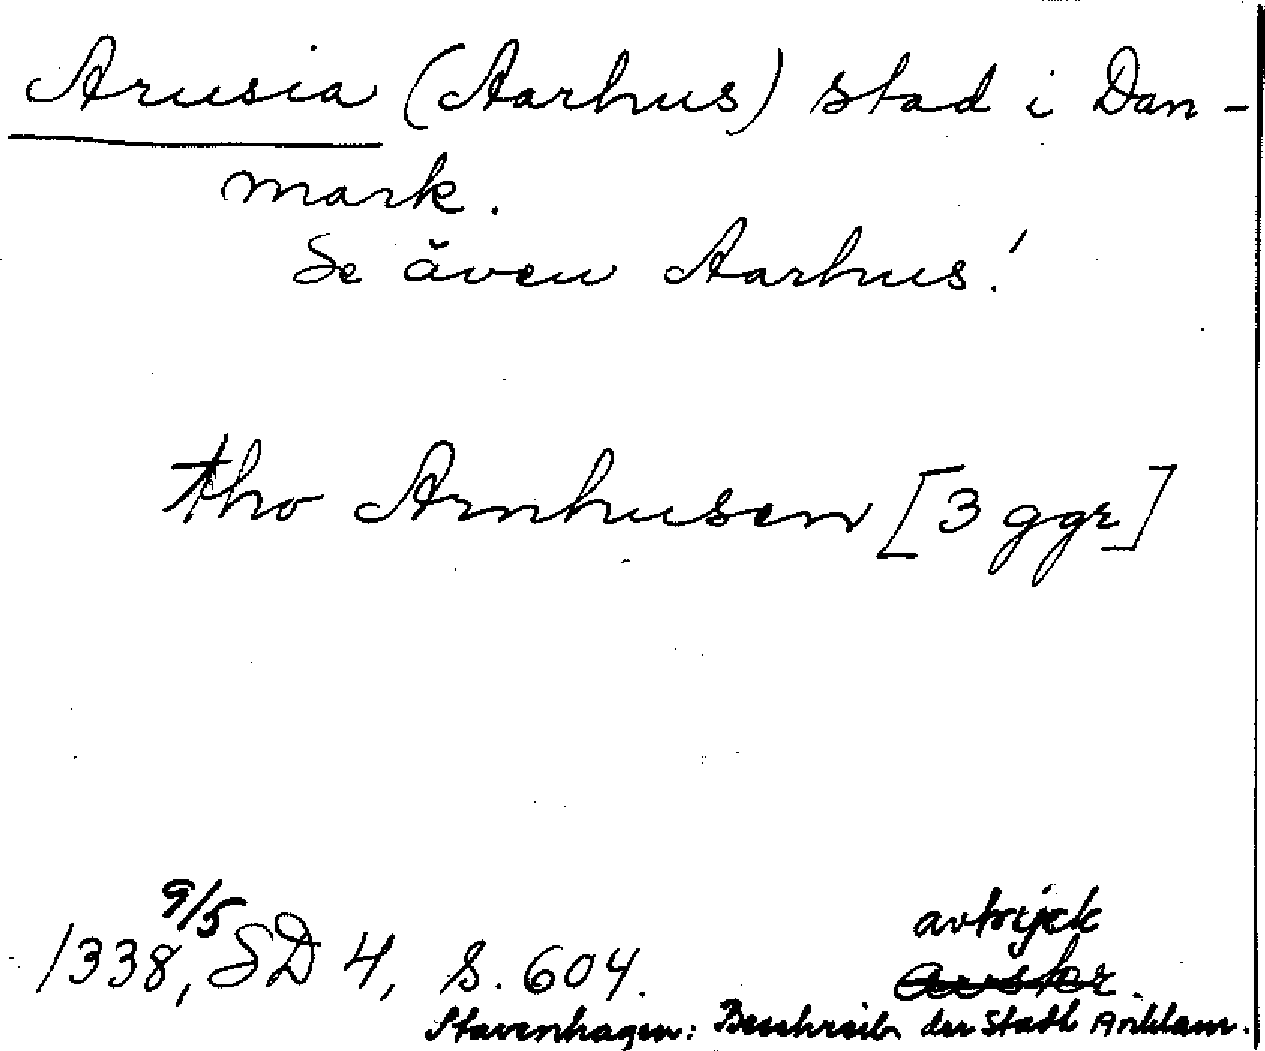 Arusia (Aarhus) stad i Dan-
mark.
Se även Aarhus!
tho Arnhusen [3 ggr]
9/5
1338, SD 4, s. 604.
avtryck
avskr.
Stavenhagen: Beschreib. der Stadt Anklam.